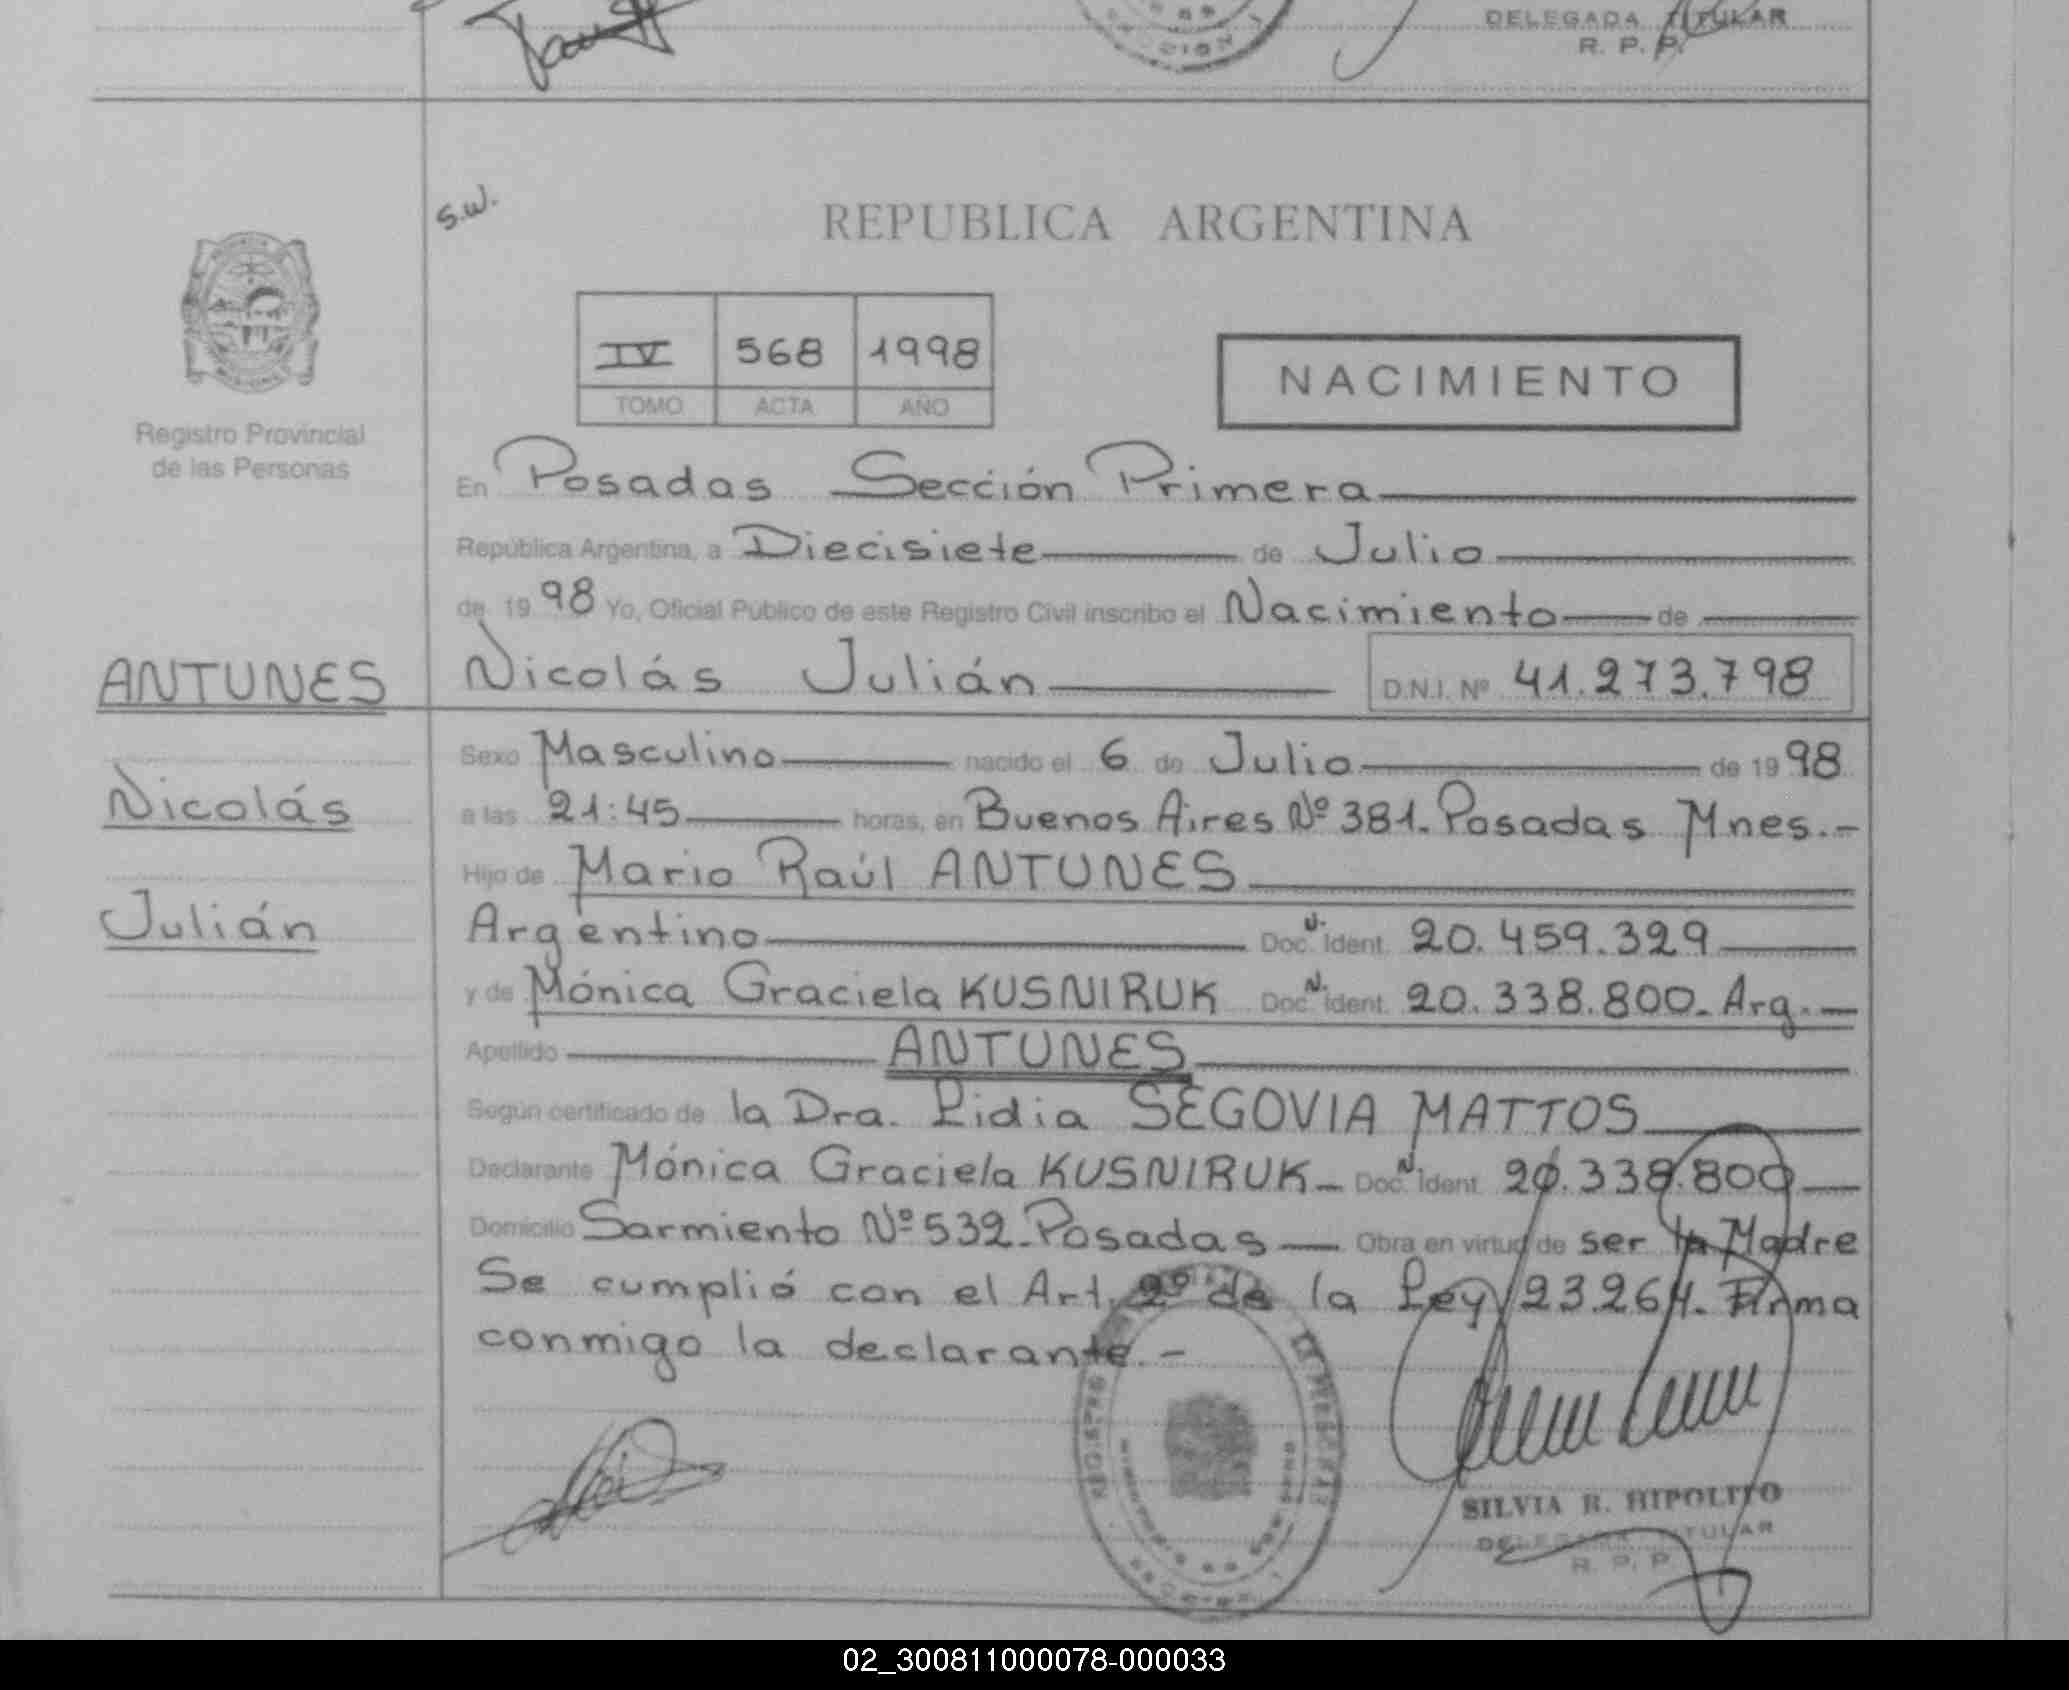 DELEGADA TITULAR
R. P. P.
S.W.
REPUBLICA ARGENTINA
IV 568 1998
TOMO ACTA AÑO
NACIMIENTO
Registro Provincial
de las Personas
En Posadas Sección Primera
República Argentina, a Diecisiete de Julio
de 1998 Yo, Oficial Público de este Registro Civil inscribo el Nacimiento de
ANTUNES Nicolás Julián D.N.I. Nº 41.273.798
Sexo Masculino nacido el 6 de Julio de 1998
Nicolás
a las 21:45 horas, en Buenos Aires Nº 381. Posadas Mnes.-
Hijo de Mario Raúl ANTUNES
Julián
Argentino Doc. N. Ident. 20.459.329
y de Mónica Graciela KUSNIRUK Doc. N. Ident. 20.338.800. Arg.-
Apellido ANTUNES
Según certificado de la Dra. Lidia SEGOVIA MATTOS
Declarante Mónica Graciela KUSNIRUK - Doc. N. Ident. 20.338.800
Domicilio Sarmiento Nº 532. Posadas Obra en virtud de ser la Madre
Se cumplió con el Art. 2º de la Ley 23.264. Firma
conmigo la declarante.-
SILVIA R. HIPOLITO
DELEGADA TITULAR
R. P. P.
02_300811000078-000033